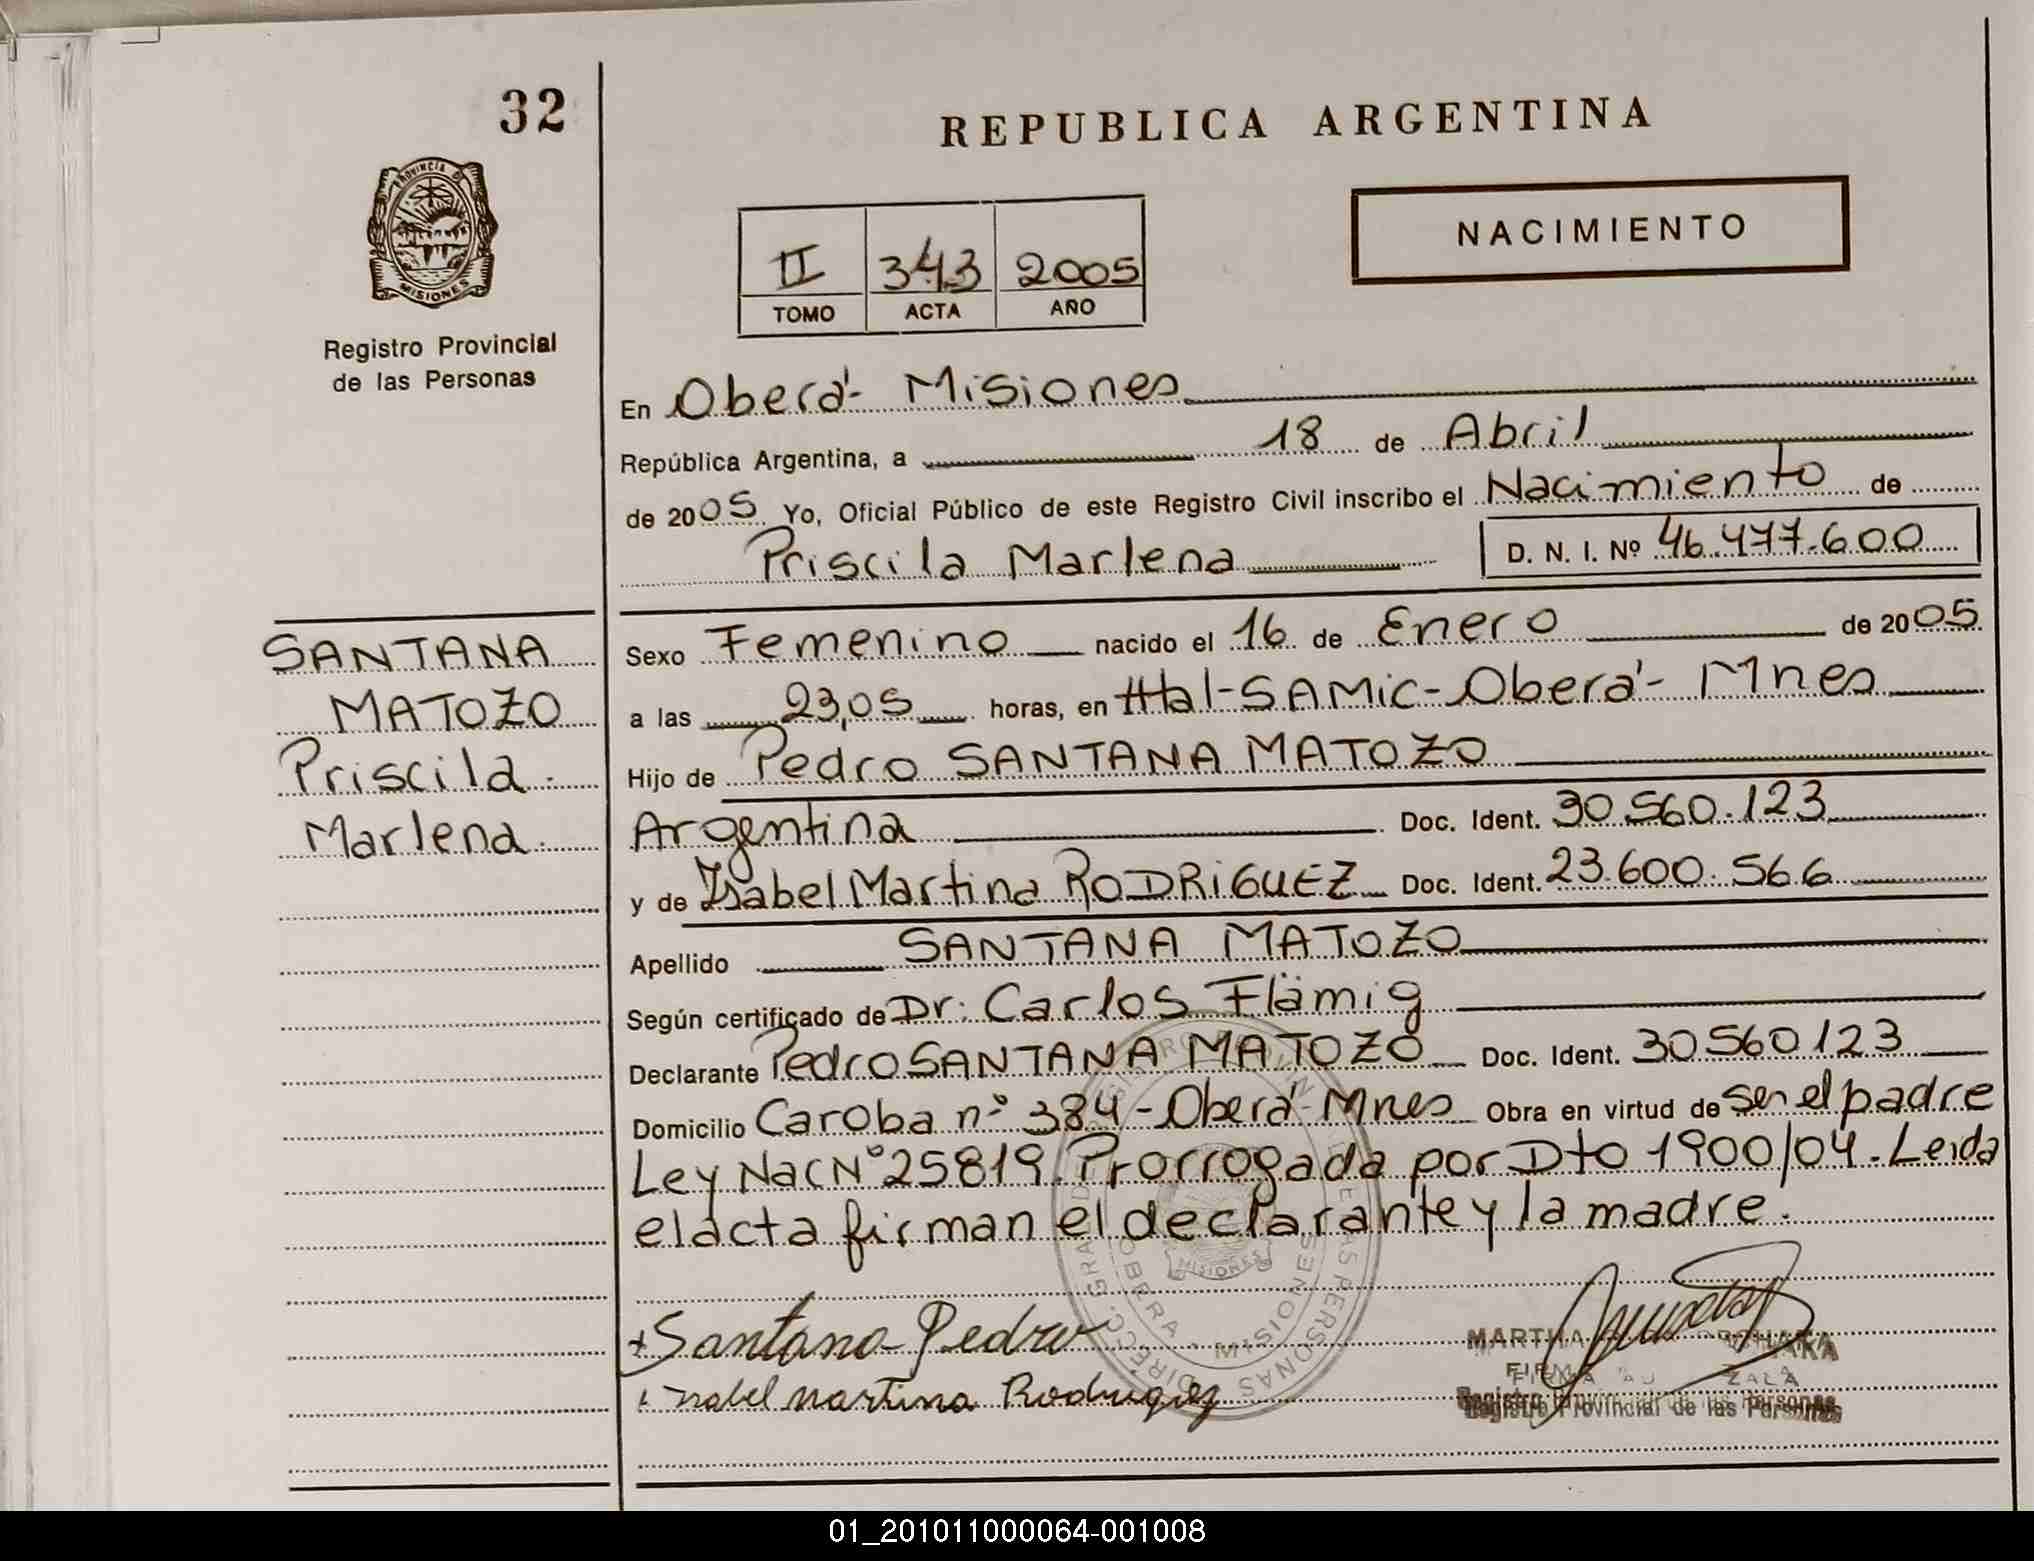 32
REPUBLICA ARGENTINA
PROVINCIA D
MISIONES
NACIMIENTO
II 343 2005
TOMO ACTA AÑO
Registro Provincial
de las Personas
En Oberá - Misiones
República Argentina, a 18 de Abril
de 2005 Yo, Oficial Público de este Registro Civil inscribo el Nacimiento de
Priscila Marlena D. N. I. Nº 46.477.600
SANTANA
MATOZO
Priscila
Marlena
Sexo Femenino nacido el 16 de Enero de 2005
a las 23,05 horas, en Htal-SAMIC-Oberá- Mnes
Hijo de Pedro SANTANA MATOZO
Argentina Doc. Ident. 30.560.123
y de Isabel Martina RODRIGUEZ Doc. Ident. 23.600.566
Apellido SANTANA MATOZO
Según certificado de Dr: Carlos Flämig
Declarante Pedro SANTANA MATOZO Doc. Ident. 30560123
Domicilio Caroba nº 384 - Oberá - Mnes Obra en virtud de ser el padre
Ley Nac Nº 25819. Prorrogada por Dto 1900/04. Leida
el acta firman el declarante y la madre.
+ Santana Pedro
Isabel martina Rodriguez
MARTHA
FIRMA
Registro Provincial de las Personas
OBERA - MISIONES
01_201011000064-001008